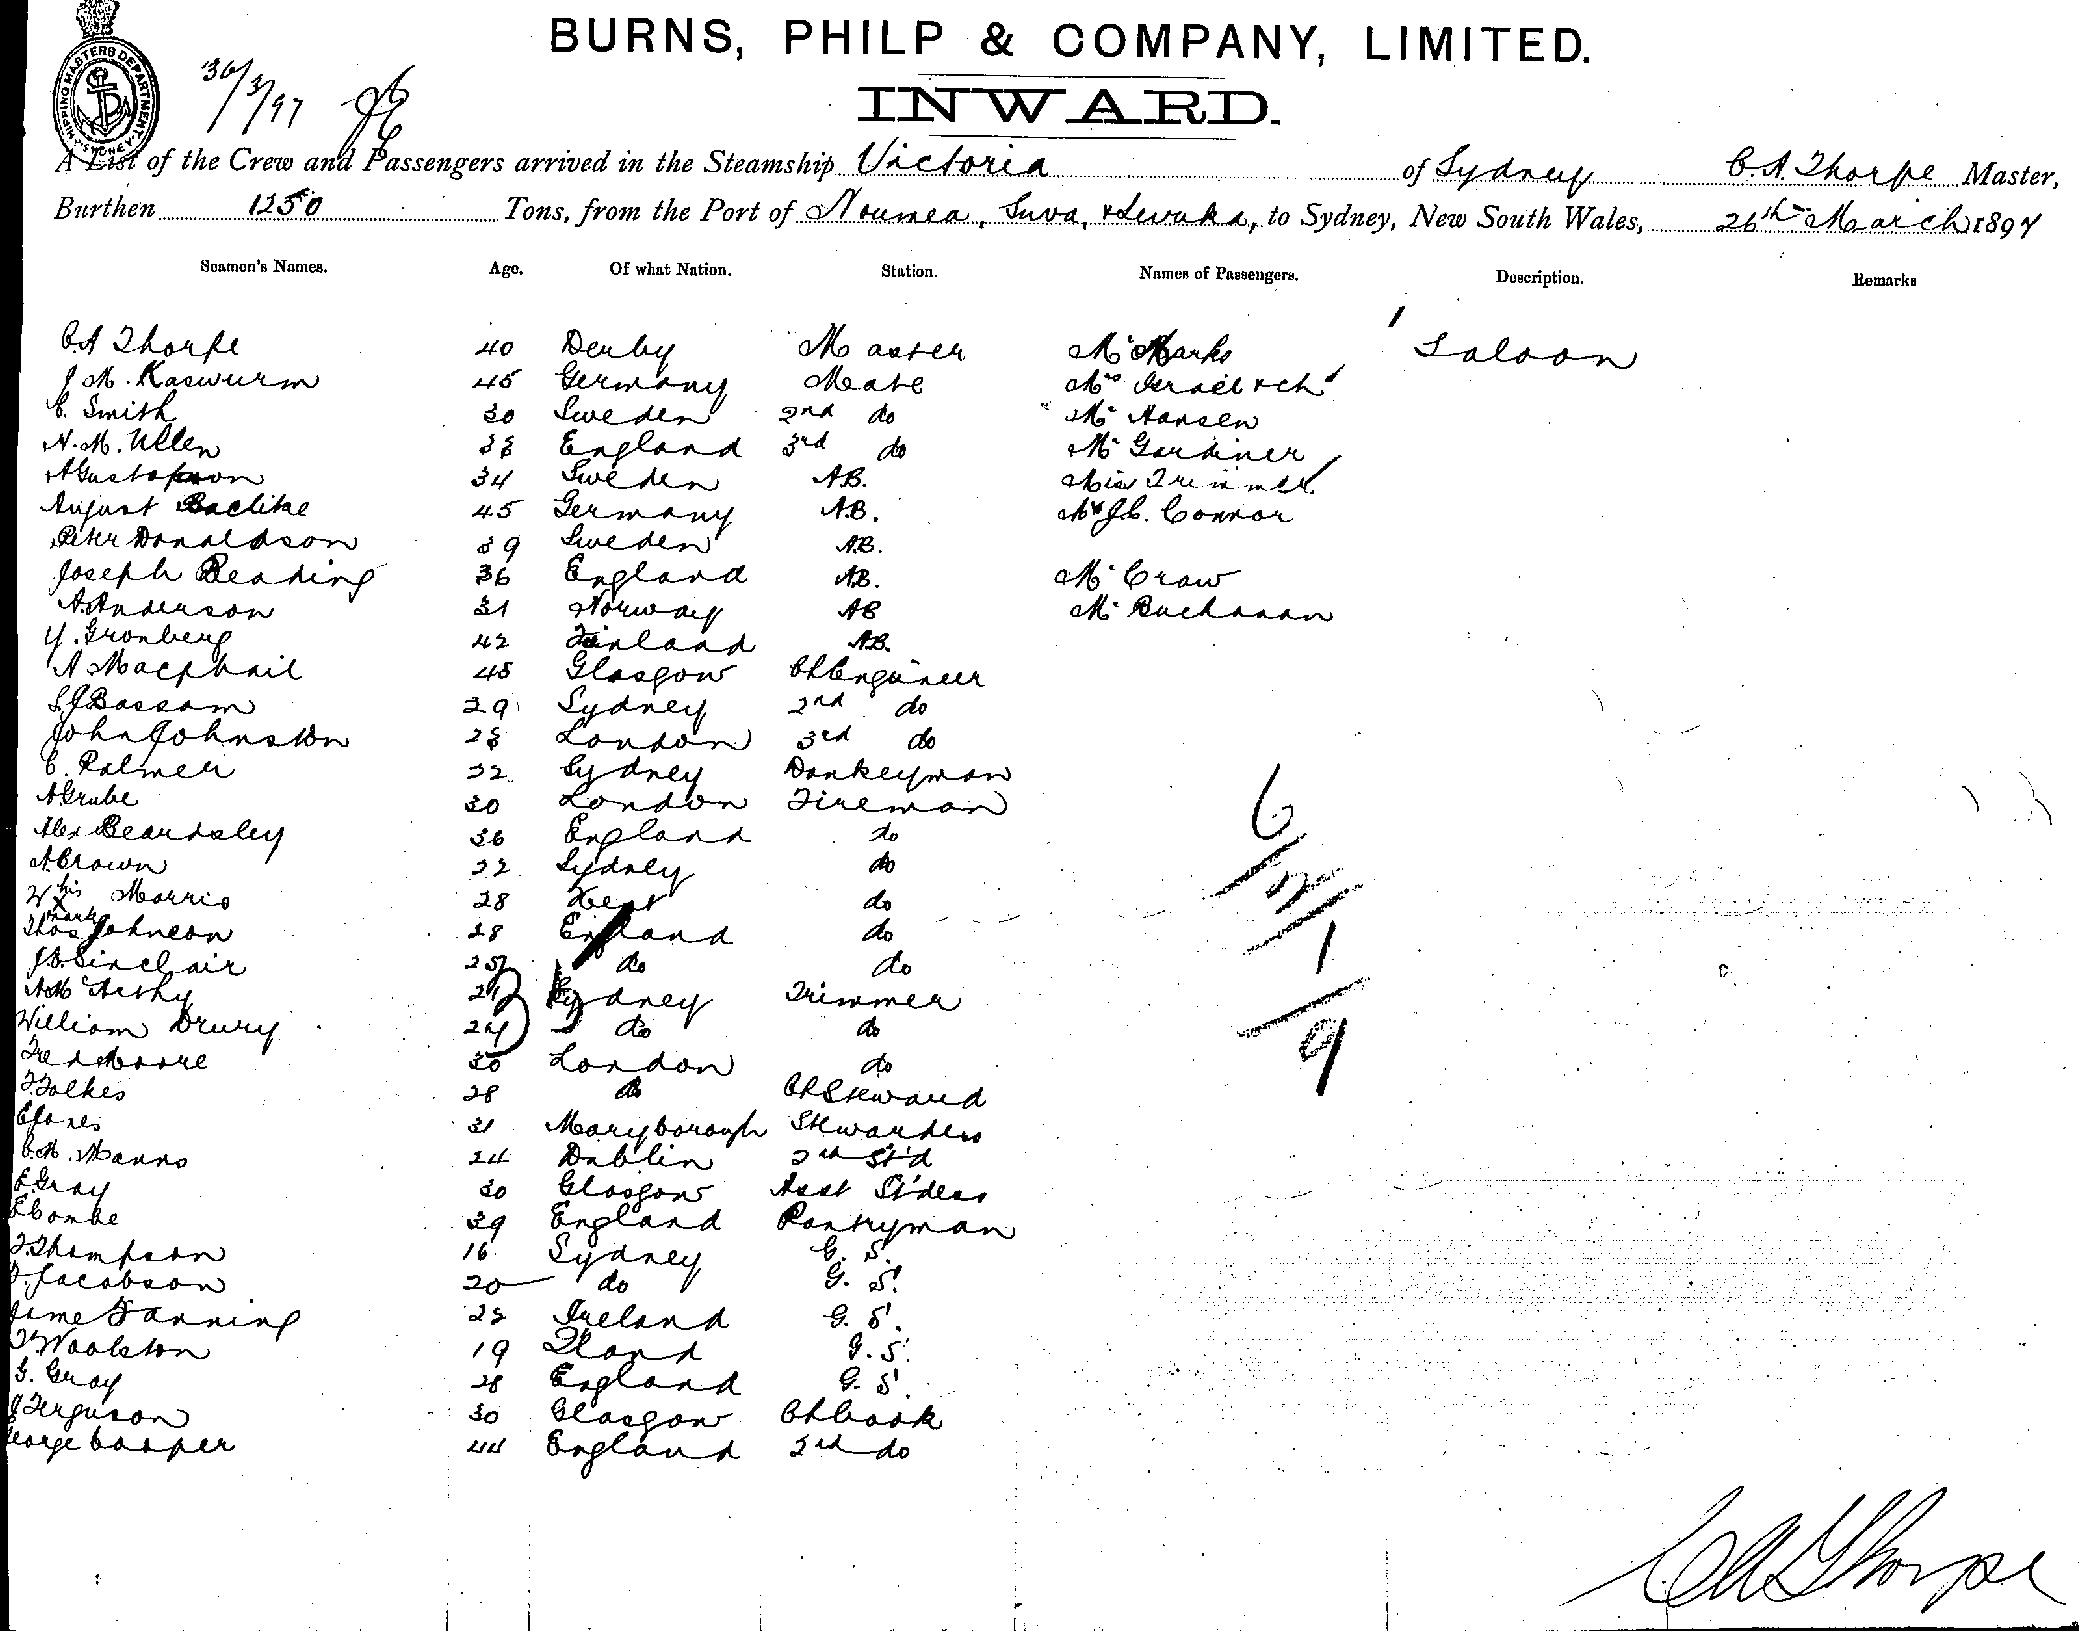 BURNS, PHILP & COMPANY, LIMITED.
INWARD.
SHIPPING MASTERS DEPARTMENT. SYDNEY
26/3/97
A List of the Crew and Passengers arrived in the Steamship Victoria of Sydney C.A. Thorpe Master,
Burthen 1250 Tons, from the Port of Noumea, Suva, & Levuka, to Sydney, New South Wales, 26th March 1897
Seamen's Names. Age. Of what Nation. Station. Names of Passengers. Description. Remarks
C.A Thorpe 40 Derby Master Mr Marks 1 Saloon
J. M. Kaswurm 45 Germany Mate Mrs Israel & chd
C. Smith 30 Sweden 2nd do Mr Hansen
N. M. Ullen 38 England 3rd do Mr Gardiner
A Gustafson 34 Sweden A.B. Miss Trimmer
August 45 Germany A.B. Mr J.C. Connor
Peter Donaldson 39 Sweden A.B.
Joseph Reading 36 England AB. Mr Craw
A. Anderson 31 Norway AB Mr Buchanan
Y. Gronberg 42 Finland A.B.
A Macphail 45 Glasgow Ch Engineer
S.J Bassam 29 Sydney 2nd do
John Johnston 28 London 3rd do
C. Palmer 32 Sydney Donkeyman
A Grube 30 London Fireman
Alex Beardsley 36 England do
A Brown 22 Sydney do
Wm his x mark Morris 28 Kent do
Thos Johnson 28 England do
J.B. Sinclair 25 do do
A Mc Sydney Trimmer
William Drury 24 do do
Fred Moore 30 London do
F. Folkes 28 do Ch Steward
E Jones 31 Maryborough Stewardess
C. M. Manns 24 Dublin 2nd St'd
E. Gray 30 Glasgow Asst St'dess
E Combe 39 England Pantryman
F. Thompson 16 Sydney G. S.
Jacobson 20 do G. S.
Jame Fanning 28 Ireland G. S.
Woolston 19 G. S.
G. Gray 28 England G. S.
J Ferguson 30 Glasgow Ch Cook
George Cooper 44 England 2nd do
6
2
1
9
CA Thorpe